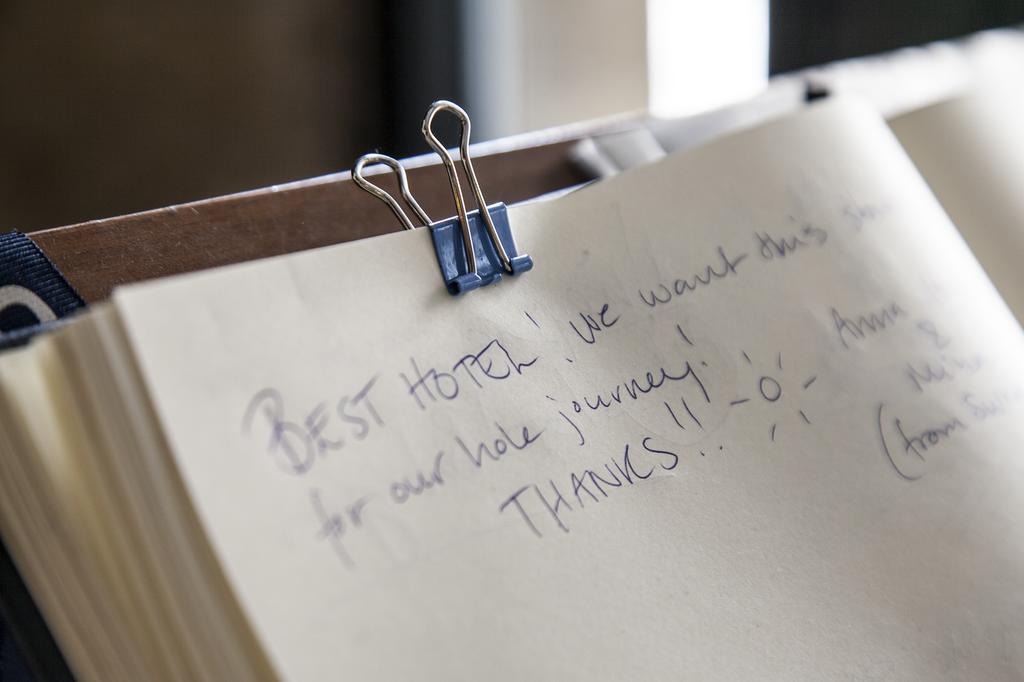 BEST HOTEL! We want this
for our hole journey!
THANKS!!
Anna
&
(from